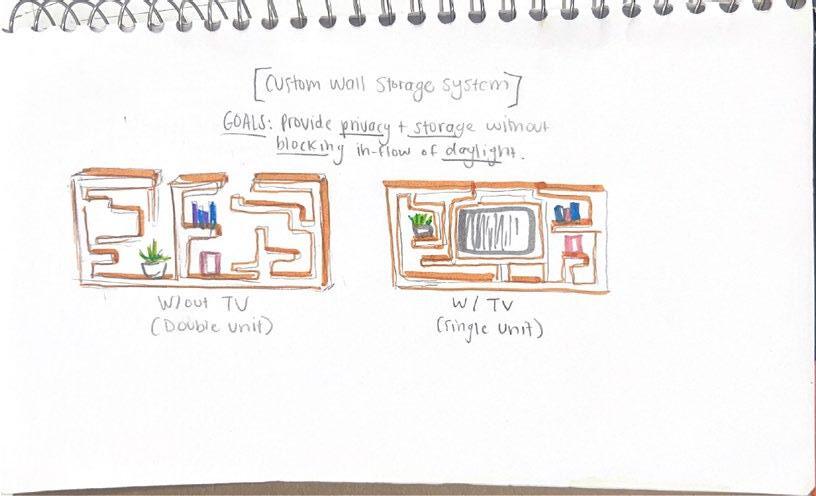 [Custom Wall Storage System]
GOALS: Provide privacy + storage without
blocking in-flow of daylight.
W/out TV
(Double unit)
W/ TV
(Single unit)